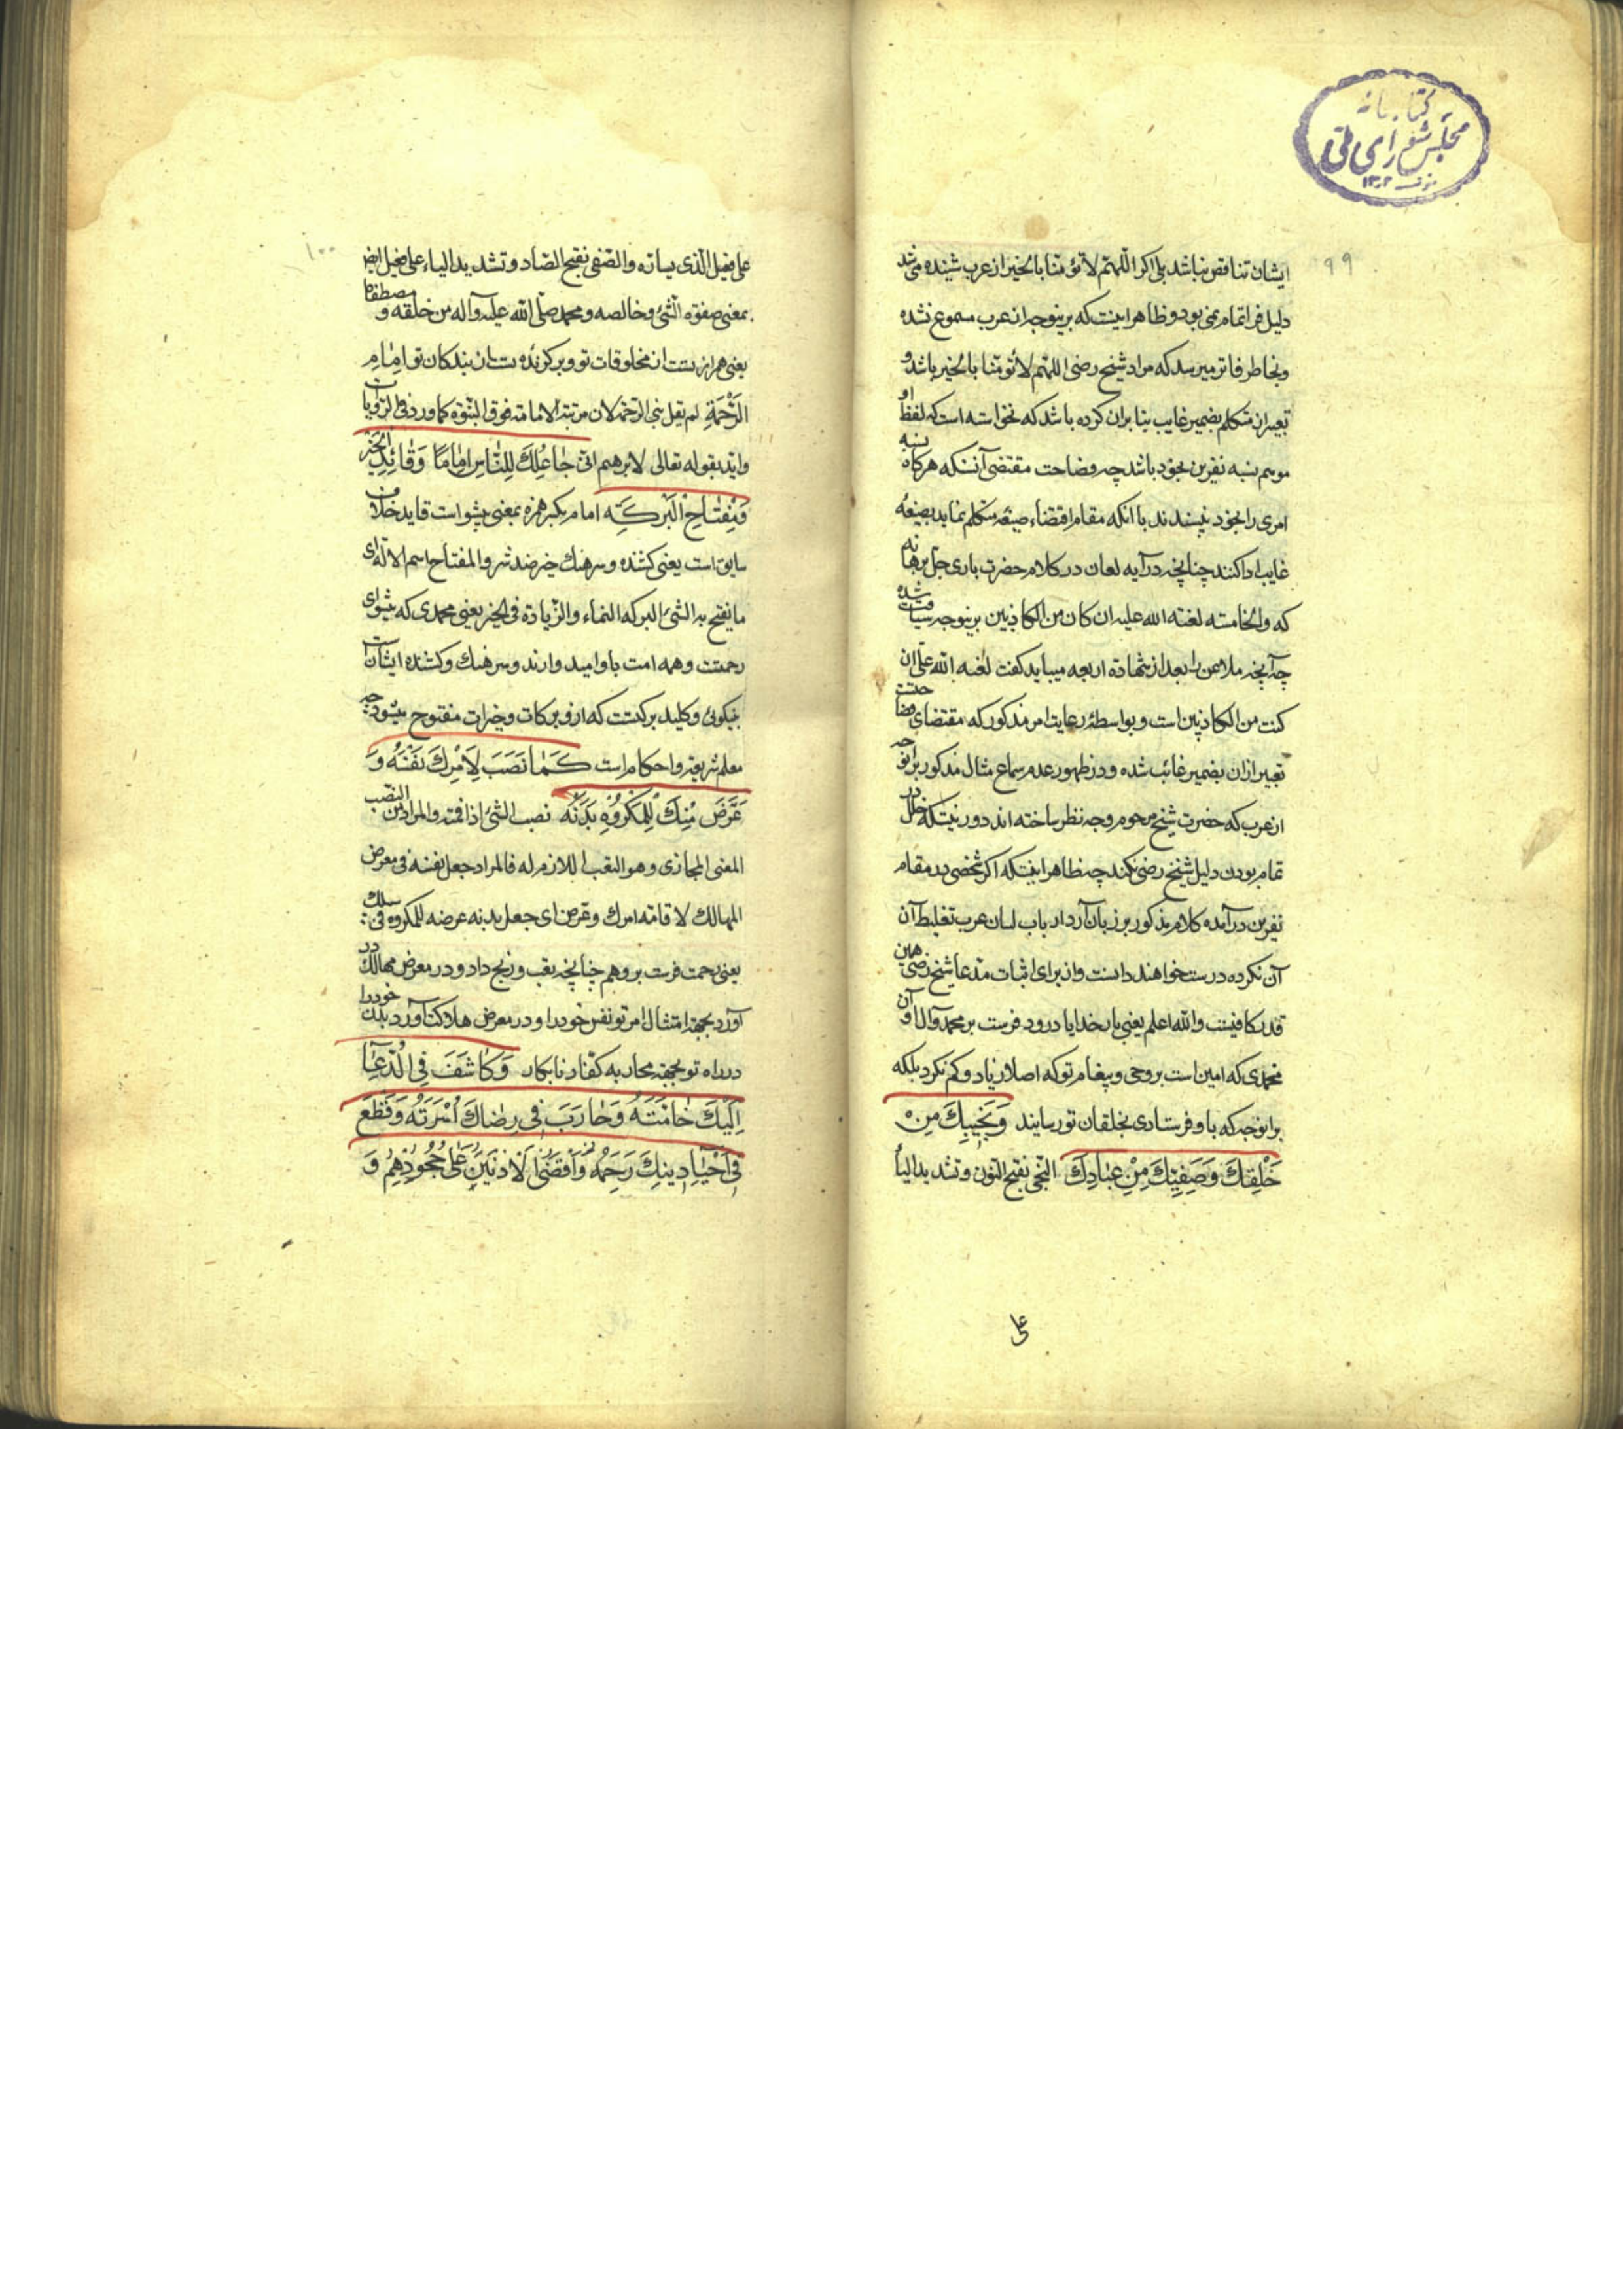 کتابخانه
مجلس شورای ملی
۱۳۰۲
۹۹
ایشان تناقض نباشد بلی اکر اللهم لا تؤمنا بالخیر از عرب شنیده می شد
دلیل فرا تمام می بود و ظاهر اینست که برینوجه از عرب مسموع نشده
و بخاطر فاتر میرسد که مراد شیخ رضی اللهم لا تؤمنا بالخیر باشد و
تعبیر از متکلم بضمیر غایب بنا بران کرده باشد که نخواسته است که لفظ او
موهم نسبه نفرین بخود باشد چه فصاحت مقتضی آنستکه هرکاه نسبه
امری را بخود نپسندند با انکه مقام اقتضاء صیغه متکلم نماید بصیغه
غایب ادا کنند چنانچه در آیه لعان در کلام حضرت باری جل برهانه
که والخامسة لعنة الله علیه ان کان من الکاذبین برینوجه سیاقت شده
چه آنچه ملاعن را بعد از شهادة اربعه میباید کفت لعنة الله علی ان
کنت من الکاذبین است و بواسطهٔ رعایت امر مذکور که مقتضای فصاحتست
تعبیر ازان بضمیر غائب شده و در ظهور عدم سماع مثال مذکور برانوجه
از عرب که حضرت شیخ مرحوم وجه نظر ساخته اند دور نیست که خلل در
تمام بودن دلیل شیخ رضی نکند چه ظاهر اینستکه اکر شخصی در مقام
نفرین درآمده کلام مذکور بر زبان آرد ارباب لسان عرب تغلیط آن
آن نکرده درست خواهند دانست و از برای اثبات مدعا شیخ رضی همین
قدر کافیست والله اعلم یعنی بار خدایا درود فرست بر محمد و آل او آن
محمدی که امین است بر وحی و پیغام تو که اصلا زیاد و کم نکرد بلکه
برانوجه که باو فرستادی بخلقان تو رسانید وَنَجِیبِكَ مِنْ
خَلْقِكَ وَصَفِیِّكَ مِنْ عِبَادِكَ النجی بفتح النون و تشدید الیاء
علی
۱۰۰
علی فعیل الذی یساته والصفی بفتح الصاد و تشدید الیاء علی فعیل ایضا
بمعنی صفوة الشئ و خالصه و محمد صلی الله علیه وآله من خلقه و مصطفاه
یعنی همراز تست از مخلوقات تو و برکزیدهٔ تست از بندکان تو اِمَامِ
الرَّحْمَةِ لم یقل نبی الرحمة لان مرتبة الامامة فوق النبوة کما ورد فی الروایات
واید بقوله تعالی لابرهیم انی جَاعِلُكَ لِلنَّاسِ اِمَامًا وَقَائِدِ الْخَیْرِ
وَمِفْتَاحِ الْبَرَكَةِ امام بکسر همزه بمعنی پیشوا است قاید خلاف
سایق است یعنی کشنده و سرهنك خیر ضد شر والمفتاح اسم لآلة ای
ما یفتح به الشئ البرکه النماء والزیادة فی الخیر یعنی محمدی که پیشوای
رحمتست و همه امت باو امید وارند و سرهنك و کشنده ایشان است
بنیکوئی و کلید برکتست که ازو برکات و خیرات مفتوح میشود چه
معلم شریعة و احکام است كَمَا نَصَبَ لِاَمْرِكَ نَفْسَهُ وَ
عَرَّضَ فِیكَ لِلْمَكْرُوهِ بَدَنَهُ نصب الشئ اذا اقمته والمراد من النصب
المعنی المجازی و هو التعب اللازم له فالمراد جعل نفسه فی معرض
المهالك لاقامة امرك و عرض ای جعل بدنه عرضه للمکروه فی سبیلك
یعنی رحمت فرست برو هم چنانچه بتعب و رنج داد و در معرض مهالك در
آورد بجهة امتثال امر تو نفس خود را و در معرض هلاکت آورد بدن خود را
در راه تو بجهة محاربه کفار نابکار وَكَاشَفَ فِي الدُّعَاءِ
اِلَیْكَ حَامَّتَهُ وَحَارَبَ فِي رِضَاكَ اُسْرَتَهُ وَقَطَعَ
فِي اِحْیَاءِ دِینِكَ رَحِمَهُ وَاَقْصَی الْاَدْنَیْنَ عَلَی جُحُودِهِمْ وَ